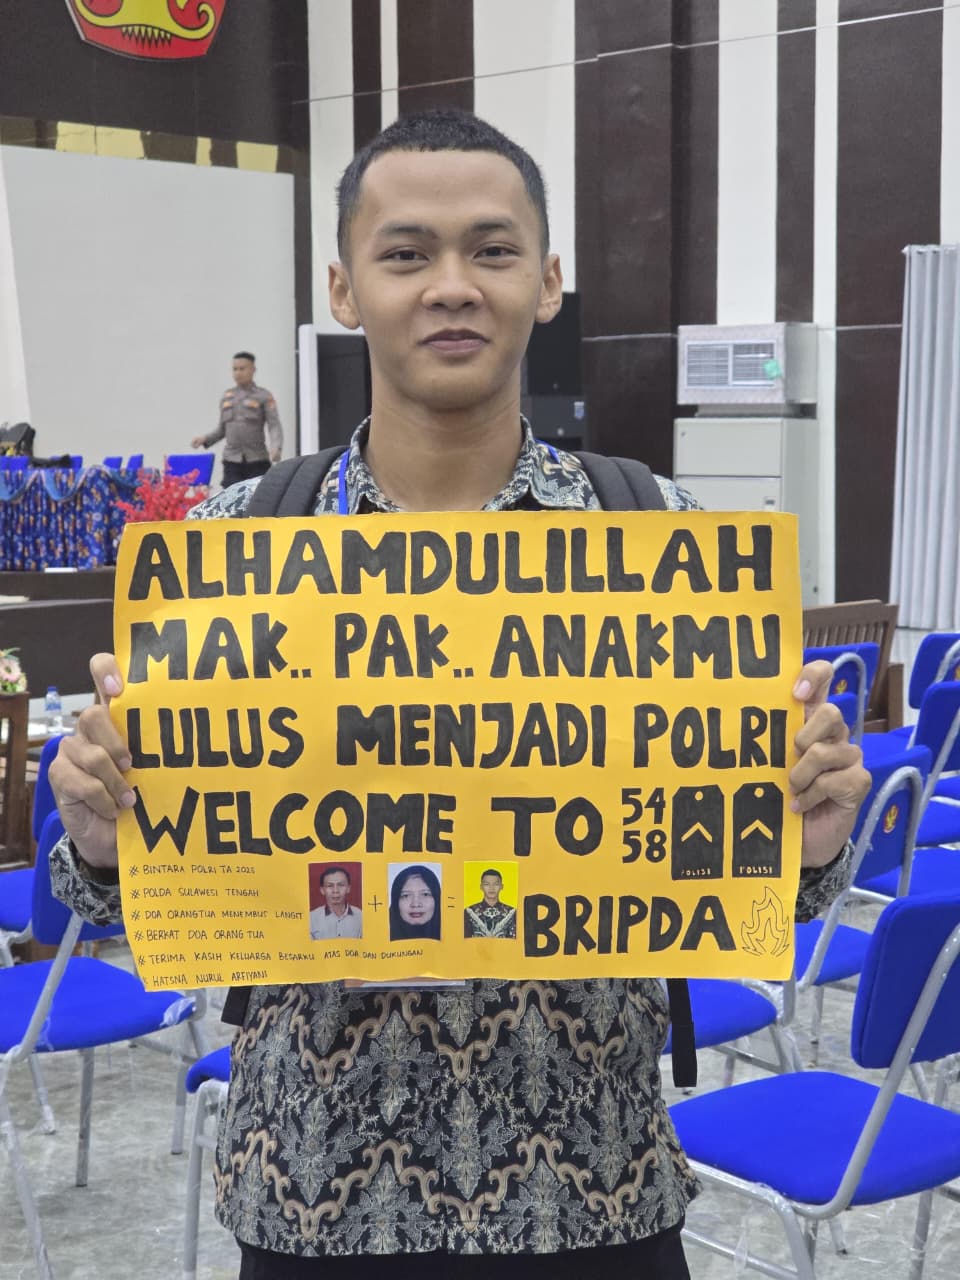 ALHAMDULILLAH
MAK.. PAK.. ANAKMU
LULUS MENJADI POLRI
WELCOME TO 54 58
POLISI POLISI
※ BINTARA POLRI TA 2025
※ POLDA SULAWESI TENGAH
※ DOA ORANGTUA MENEMBUS LANGIT
※ BERKAT DOA ORANG TUA
※ TERIMA KASIH KELUARGA BESARKU ATAS DOA DAN DUKUNGAN
※ HATSNA NURUL ARFIYANI
+ =
BRIPDA